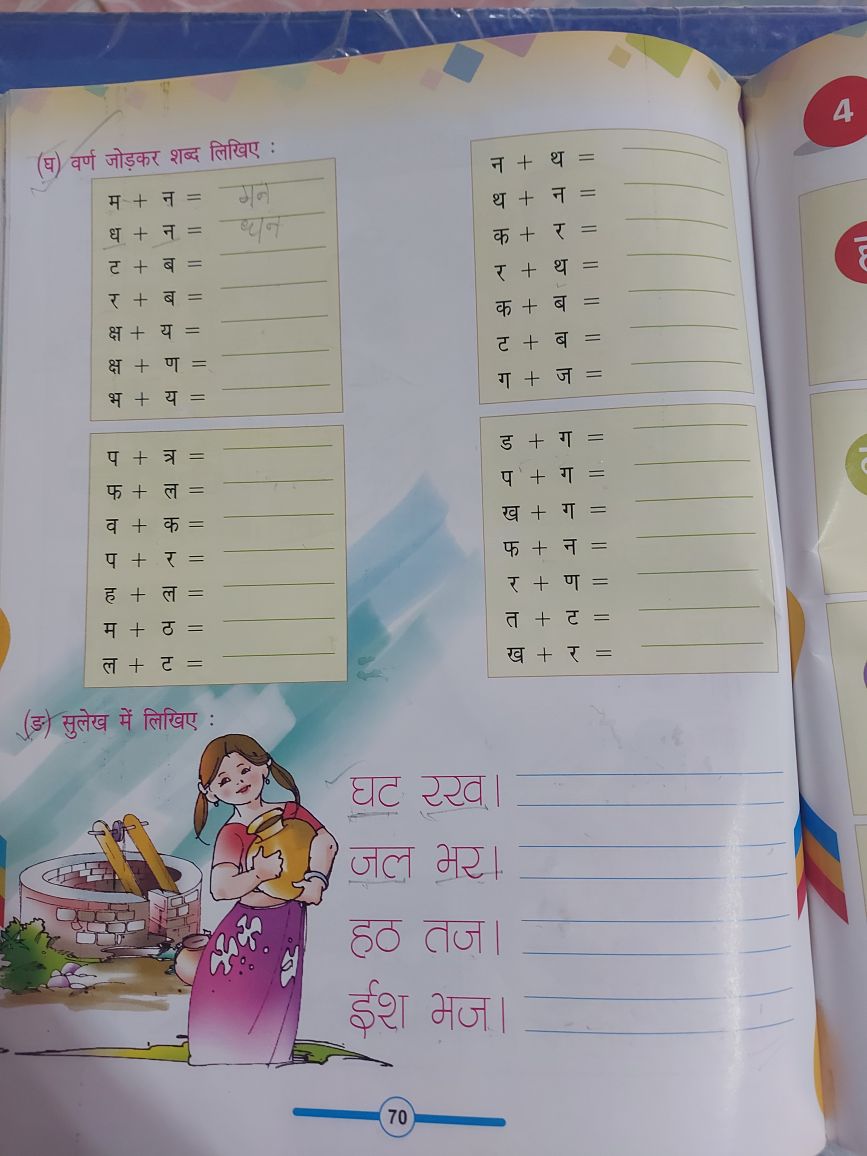 (घ) वर्ण जोड़कर शब्द लिखिए :
म + न = मन
ध + न = धन
ट + ब =
र + ब =
क्ष + य =
क्ष + ण =
भ + य =
न + थ =
थ + न =
क + र =
र + थ =
क + ब =
ट + ब =
ग + ज =
प + त्र =
फ + ल =
व + क =
प + र =
ह + ल =
म + ठ =
ल + ट =
ड + ग =
प + ग =
ख + ग =
फ + न =
र + ण =
त + ट =
ख + र =
(ङ) सुलेख में लिखिए :
घट रख।
जल भर।
हठ तज।
ईश भज।
70
4